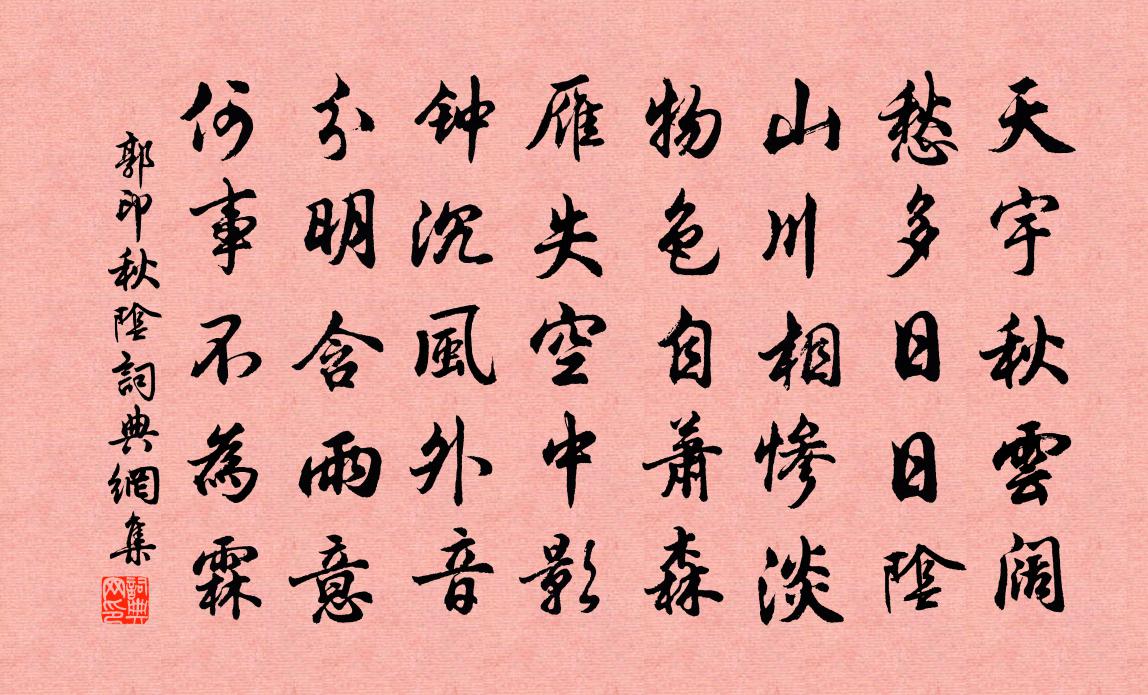 天宇秋雲阔
愁多日日陰
山川相慘淡
物色自蕭森
雁失空中影
钟沉風外音
分明含雨意
何事不為霖
郭印秋陰詞典網集
詞典网印